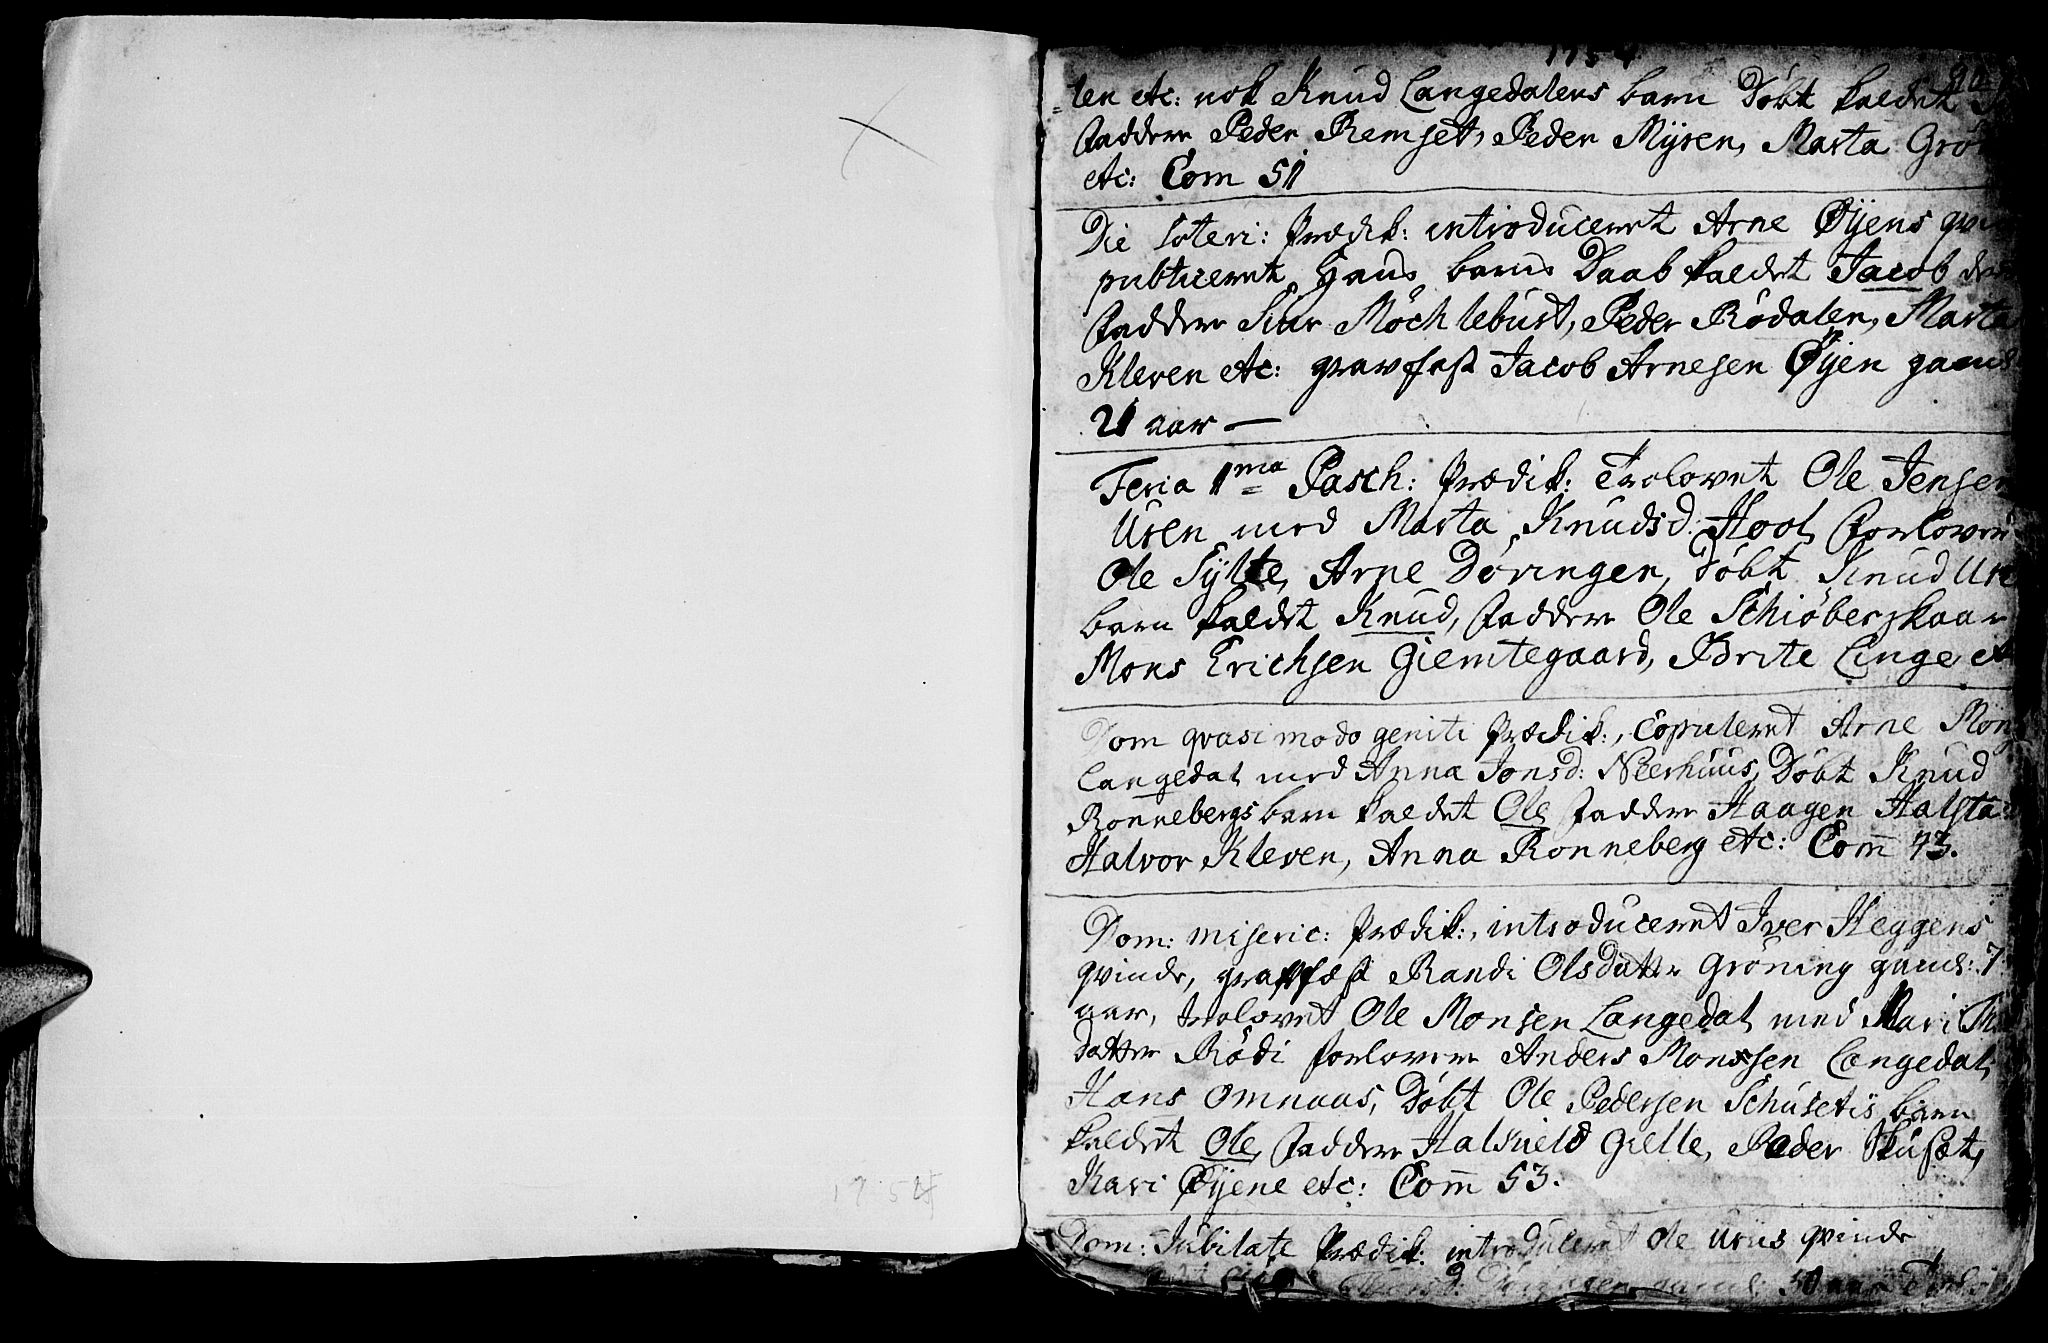 1754
len etc: nok Knud Langedalens barn Döbt kaldet
faddere Peder Remset, Peder Mÿren, Marta
etc: Com 51
Die Soteri: Prædik: introduceret Arne Øÿens
publiceret Hans barns Daab kaldet Jacob
faddere Siur Möchlebust, Peder Rödalen, Marta
Kleven etc: gravfæst Jacob Arnesen Øÿen gaml
21 aar —
Feria 1ma Pasch: Prædik: Trolovet Ole Jensen
Uren med Marta Knudsd: Hool, forlovere
Ole Sÿlte, Arne Dövingen, Döbt Knud
barn kaldet Knud, faddere Ole Schiöberskaar
Mons Erichsen Giemtegaard, Brite Linge
Dom quasimodogeniti Prædik:, Copuleret Arne Mons
Langedal med Anna Jonsd: Neerhuus, Döbt Knud
Ronnebergs barn kaldet Ole faddere Haagen
Halvor Kleven, Anna Ronneberg etc: Com̄ 43.
Dom: miseric: Prædik:, introduceret Iver Heggens
qvinde, gravfæst Randi Olsdatter Gröning gaml: 7
aar, trolovet Ole Monsen Langedal med Mari
datter Rödi forlovere Anders Monsen Langedal,
Hans Omnaas, Döbt Ole Pedersen Schusetis barn
kaldet Ole, faddere Halkield Gielle, Peder Skusæt,
Kari Øÿene etc: Com̄ 53.
Dom: Jubilate Prædik: introduceret Ole Uriis qvinde
gaml: 50 aar
1754